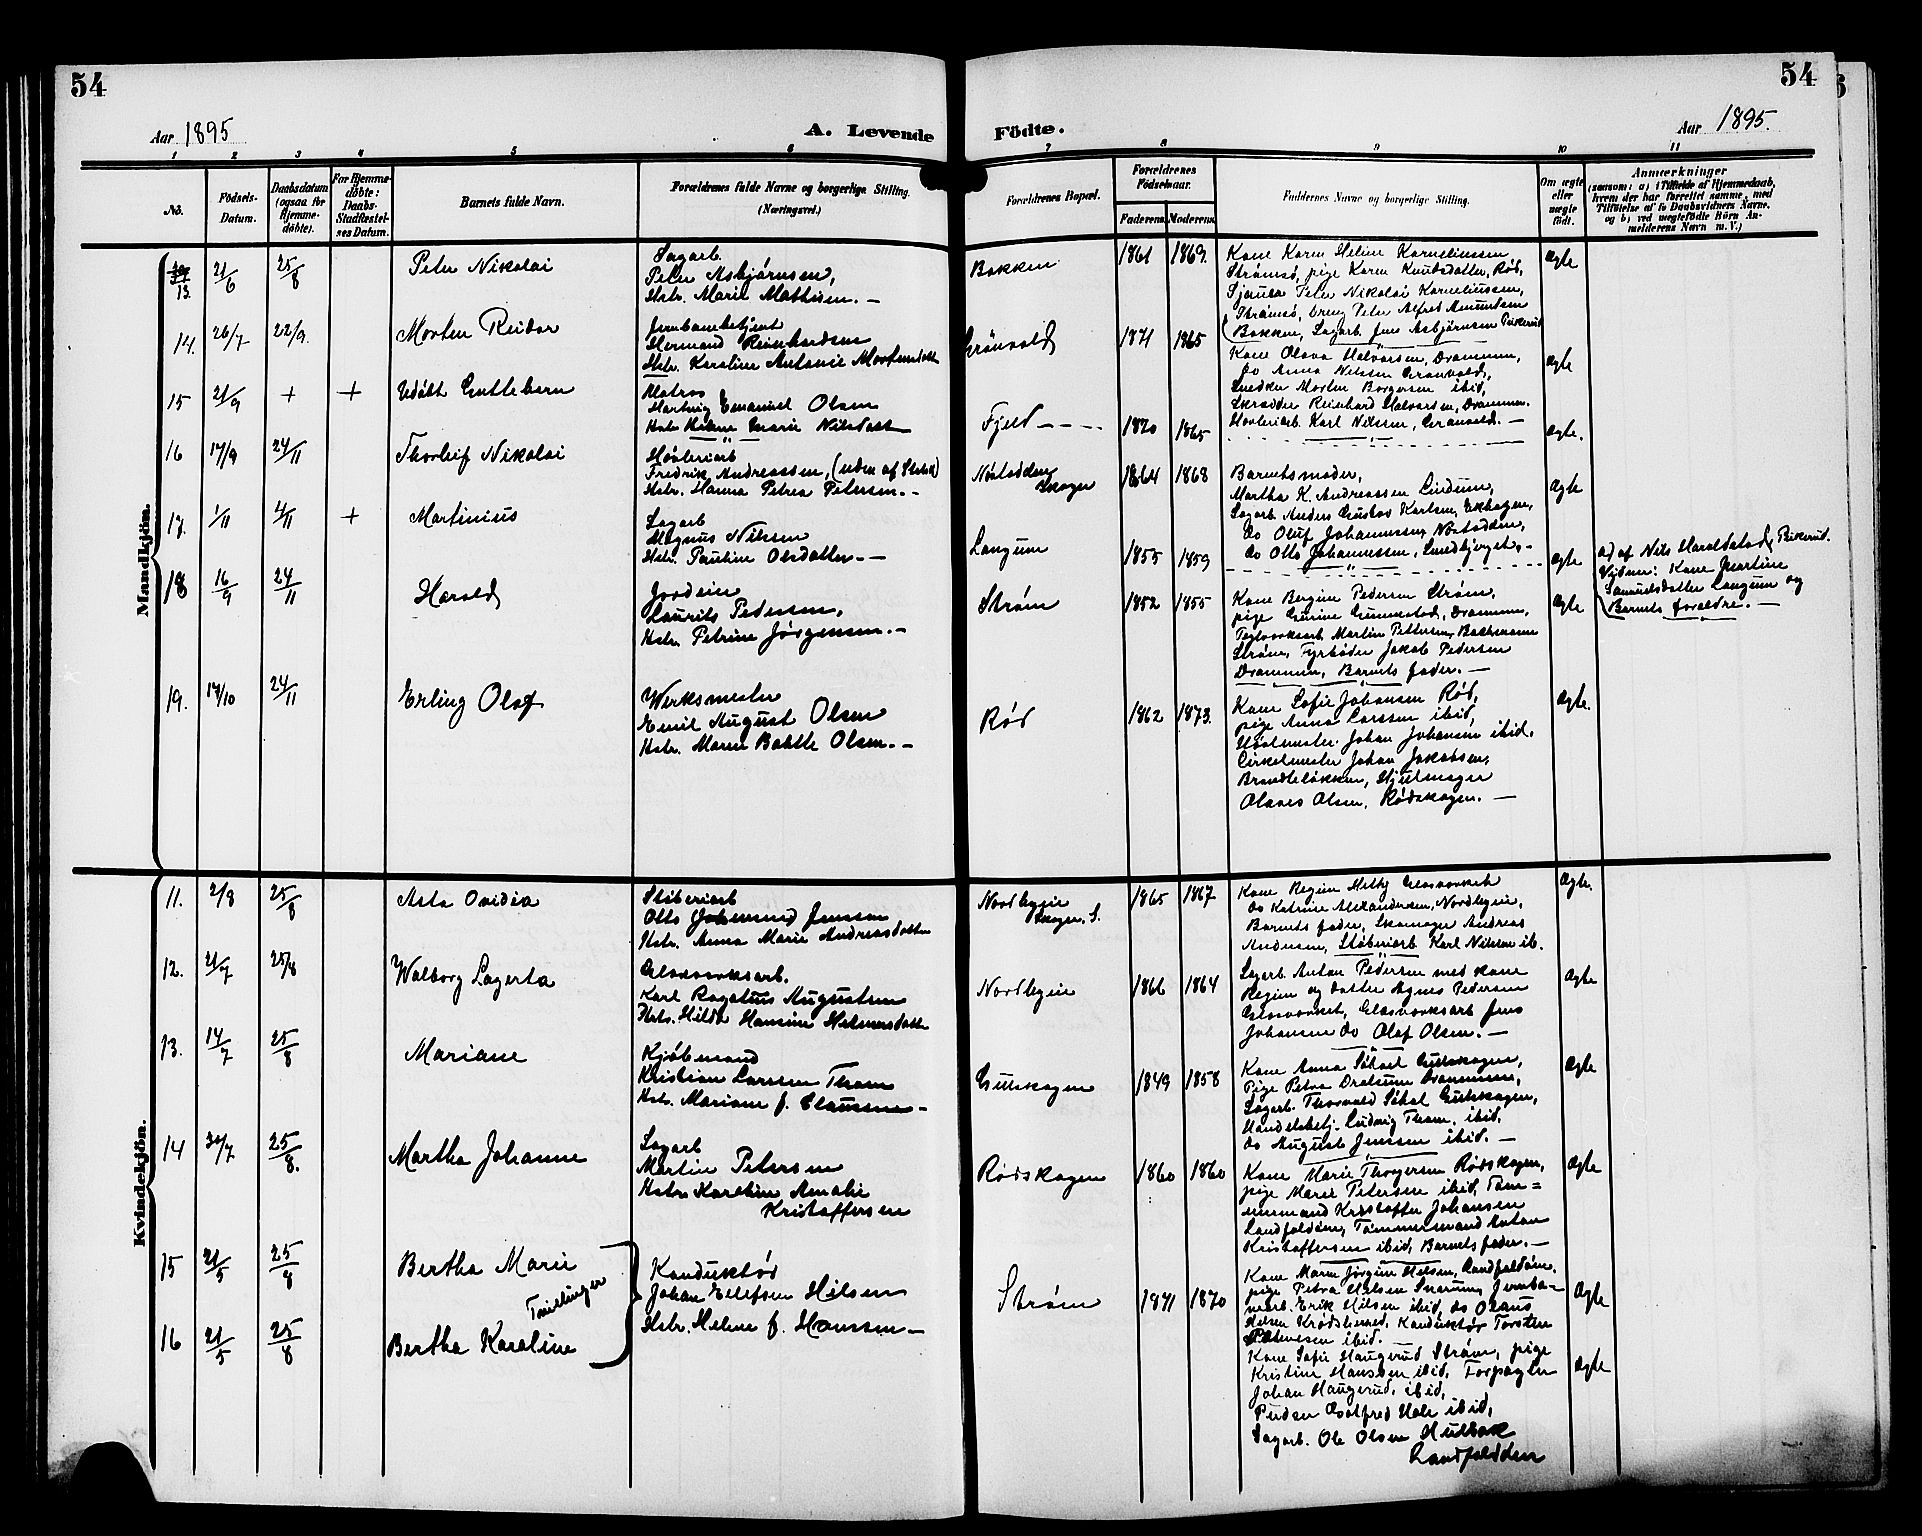 54
54
Aar 1895
A. Levende
Födte.
Aar 1895.
1
2
3
4
5
6
7
8
9
10
11
No.
Födsels-
Datum.
Daabsdatum
(ogsaa for
Hjemme-
döbte).
For Hjemme-
döbte:
Daabs-
Stadfæstel-
ses Datum.
Barnets fulde Navn.
Forældrenes fulde Navne og borgerlige Stilling.
(Næringsvei.)
Forældrenes Bopæl.
Forældrenes
Födselsaar.
Faderens.
Moderens.
Faddernes Navne og borgerlige Stilling.
Om ægte
eller
uægte
födt.
Anmærkninger
(saasom: a) i Tilfælde af Hjemmedaab,
hvem der har forrettet samme, med
Tilföielse af to Daabsvidners Navne,
og b) ved uægtefödte Börn An-
melderens Navn m. V.)
Mandkjön.
13.
21/6
25/8
Peter Nikolai
Sagarb.
Peter Asbjörnsen,
Hstr. Marie Mathisen. —
Bakken
1861
1869.
Kone Karen Helene Korneliussen
Strømsø, pige Karen Knutsdatter, Rød,
Peter Nikolai Korneliussen,
Strømsø, dreng Peter Alfred Amundsen
Bakken, Sagarb. Jens Asbjörnsen Pikerud
Ægte
14.
26/7
22/9.
Morten Reidar
Jernbanebetjent
Herman Reinhardsen
Hstr. Karoline Antonie Mortensdatt
Grönvold
1871
1865
Kone Olava Halvorsen, Drammen,
Do Anna Nilssen Grønvold,
Snedker Morten Borgersen ibid,
Skrædder Reinhard Halvorsen, Drammen.
Høvleriarb. Karl Nilssen, Grønvold. —
Ægte
15
21/9
+
+
Udøbt Guttebarn
Matros
Hartvig Emanuel Olsen
Hstr. Helene Marie Nilsdatt
Fjeld - - - -
1870
1865
Ægte.
16
17/9
24/11
Thorleif Nikolai
Høvleriarb
Fredrik Andreassen, (uden af Statsk)
Hstr. Hanna Petrea Petersen. -
Nøstodden
skogen
1864
1868
Barnets moder,
Martha K. Andreassen Lindum,
Sagarb. Anders Gustav Karlsen, Ekhagen,
Do Oluf Johannessen, Nøstodden,
Do Otto Johannessen, Smedbjerget, -
Ægte
17.
1/11
4/11
+
Martinius
Sagarb
Magnus Nilssen
Hstr. Pauline Olsdatter. —
Langum
1855
1859
Ægte
a) af Nils Haraldstad, Pikerud.
Vidner: Kone Martine
Samuelsdatter Langum og
Barnets forældre. —
18
16/9
24/11
Harald
Jordeier
Laurits Pedersen,
Hstr. Petrine Jørgensen. —
Strøm
1852
1855
Kone Bergine Pedersen Strøm,
pige Gurine Gunnestad, Drammen,
Teglværksarb. Martin Pettersen, Bachemarie
Strøm, Fyrbøder Jakob Pedersen
Drammen, Barnets fader. —
Ægte
19.
17/10
24/11
Erling Olaf
Værksmester
Emil August Olsen
Hstr. Maren Bolette Olsen. —
Rød
1862
1873.
Kone Sofie Johansen Rød,
pige Anna Larssen ibid,
Høvlmester Johan Johansen ibid.
Cirkelmester Johan Jakobsen,
Brandtløkken, Hjulmager
Olaves Olsen, Rødskogen. —
Ægte.
Kvindekjön.
11.
2/8
25/8
Asta Ovidia
Støberiarb
Otto Johannes Jenssen
Hstr. Anna Marie Andreasdatter
Nordbyeie
skogen, S.
1865
1867
Kone Regine Melby Glasværket
Do Katrine Alexandersen, Nordbyeie,
Barnets fader, Skomager Andreas
Andersen, Støberiarb Karl Nilssen ib.
Ægte.
12.
21/7
25/8
Walborg Lagerta
Glasværksarb.
Karl Rogatius Augustsen
Hstr. Hilda Hansine Helmersdatt
Nordbyeie
1866
1864
Sagarb. Anton Pedersen med kone
Regine og datter Agnes Pedersen
Glasværket, Glasværksarb Jens
Johansen Do Olaf Olsen. —
Ægte
13.
14/7
25/8
Mariane
Kjøbmand
Kristian Larssen Thom
Hstr. Mariane f. Claussen —
Gulskogen
1849
1858
Kone Anna Søhol Gulskogen,
Pige Petra Drolsum Drammen,
Sagarb. Thorvald Søhol Gulskogen,
Handelsbetj. Ludvig Thom, ibid,
Do August Jenssen ibid. —
Ægte
14
31/7
25/8.
Martha Johanne
Sagarb
Martin Petersen
Hstr. Karoline Amalie
Kristoffersen
Rødskogen
1860
1860
Kone Marie Thorgersen Rødskogen,
pige Marie Petersen ibid, Tøm=
mermand Kristoffer Johansen
Landfaldøen, Tømmermand Anton
Kristoffersen ibid, Barnets fader. —
Ægte
15
21/5
25/8
Bertha Marie
Tvillinger
Konduktør
Johan Ellefsen Hilsen
Hstr. Helene f. Hanssen —
Strøm
1871
1870
Kone Maren Jørgine Hilsen, Landfaldøen,
pige Petra Hilsen Snarum, Jernba-
nearb. Erik Hilsen ibid, do Olaus
Hilsen Krødsherred, Konduktør Torsten
Pettersen ibid. —
Ægte
16
21/5
25/8
Bertha Karoline
Kone Sofie Haugerud Strøm, pige
Kristine Hanssen ibid, Forpagter
Johan Haugerud, ibid,
ibid,
Sagarb. Ole Olsen Hulbak
Landfaldøen
Ægte